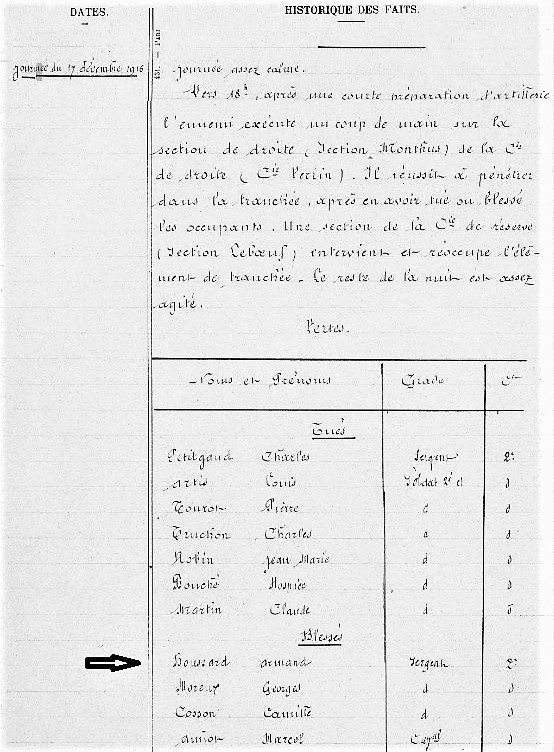 DATES.
HISTORIQUE DES FAITS.
Journée du 17 décembre 1916
Journée assez calme.
Vers 18h, après une courte préparation d'artillerie
l'ennemi exécute un coup de main sur la
section de droite (Section Monthus) de la Cie
de droite (Cie Perrin). Il réussit à pénétrer
dans la tranchée, après en avoir tué ou blessé
les occupants. Une section de la Cie de réserve
(Section Lebœuf) intervient et réoccupe l'élé-
ment de tranchée. Le reste de la nuit est assez
agité.
Pertes.
Noms et Prénoms Grade Cie
Tués
Petitgand Charles Sergent 2e
Artis Louis Soldat 2e cl d
Touron Pierre d d
Truchon Charles d d
Robin Jean Marie d d
Bouché d d
Martin Claude d d
Blessés
Boussard Armand Sergent 2e
Moreux Georges d d
Cosson Camille d d
Marcel Capal d